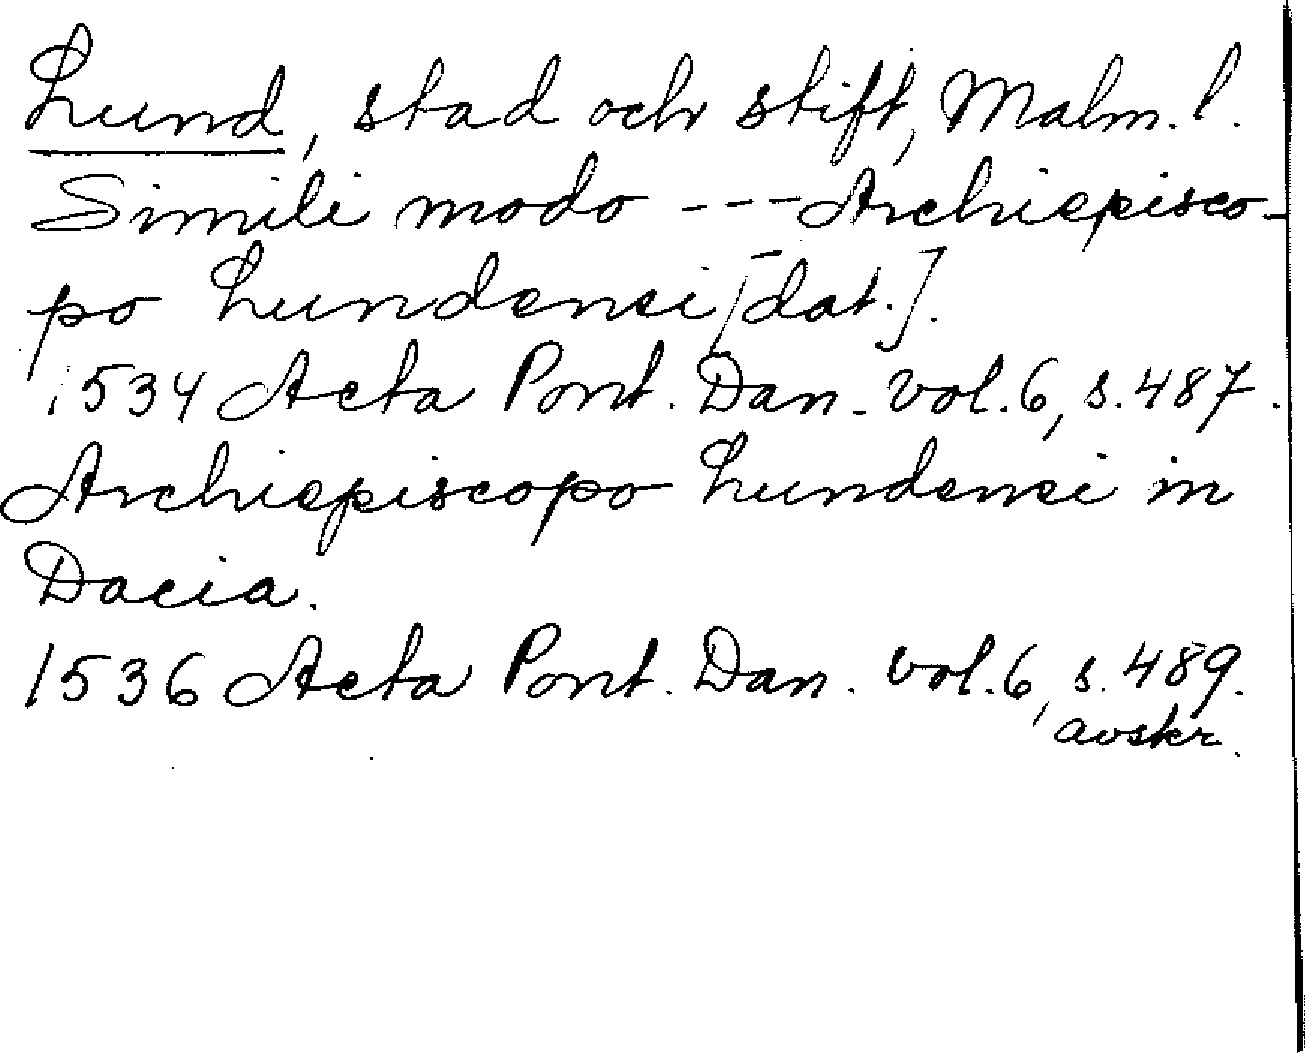 Lund, stad och stift, Malm. l.
Simili modo --- Archiepisco-
po Lundensi [dat.].
1534 Acta Pont. Dan. vol. 6, s. 487.
Archiepiscopo Lundensi in
Dacia.
1536 Acta Pont. Dan. vol. 6, s. 489.
avskr.